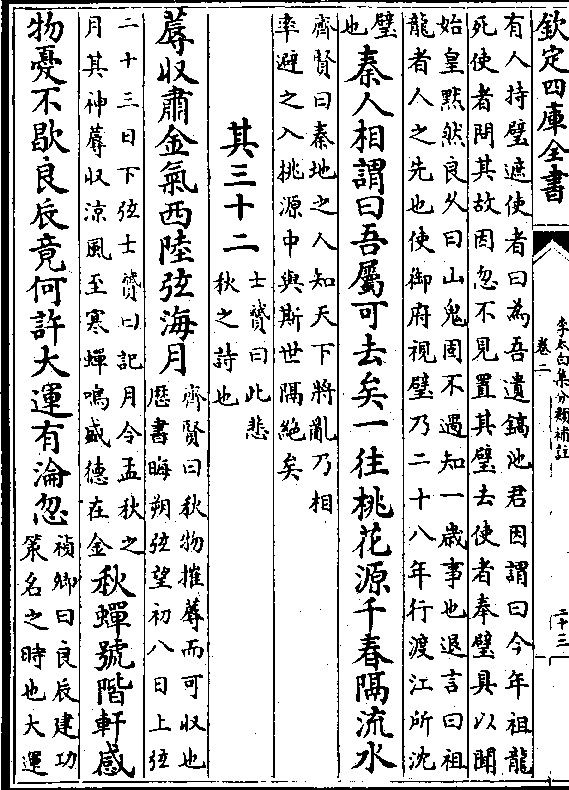 欽定四庫全書
李太白集分類補註
卷二
二十三
有人持璧遮使者曰為吾遺鎬池君因謂曰今年祖龍
死使者問其故因忽不見置其璧去使者奉璧具以聞
始皇黙然良久曰山鬼固不過知一歲事也退言曰祖
龍者人之先也使御府視璧乃二十八年行渡江所沈
璧
也
秦人相謂曰吾屬可去矣一往桃花源千春隔流水
齊賢曰秦地之人知天下將亂乃相
率避之入桃源中與斯世隔絶矣
其三十二
士贇曰此悲
秋之詩也
蓐收肅金氣西陸弦海月
齊賢曰秋物摧蓐而可収也
歴書晦朔弦望初八日上弦
二十三日下弦士贇曰記月令孟秋之
月其神蓐収涼風至寒蟬鳴盛德在金
秋蟬號階軒感
物憂不歇良辰竟何許大運有淪忽
禎卿曰良辰建功
策名之時也大運